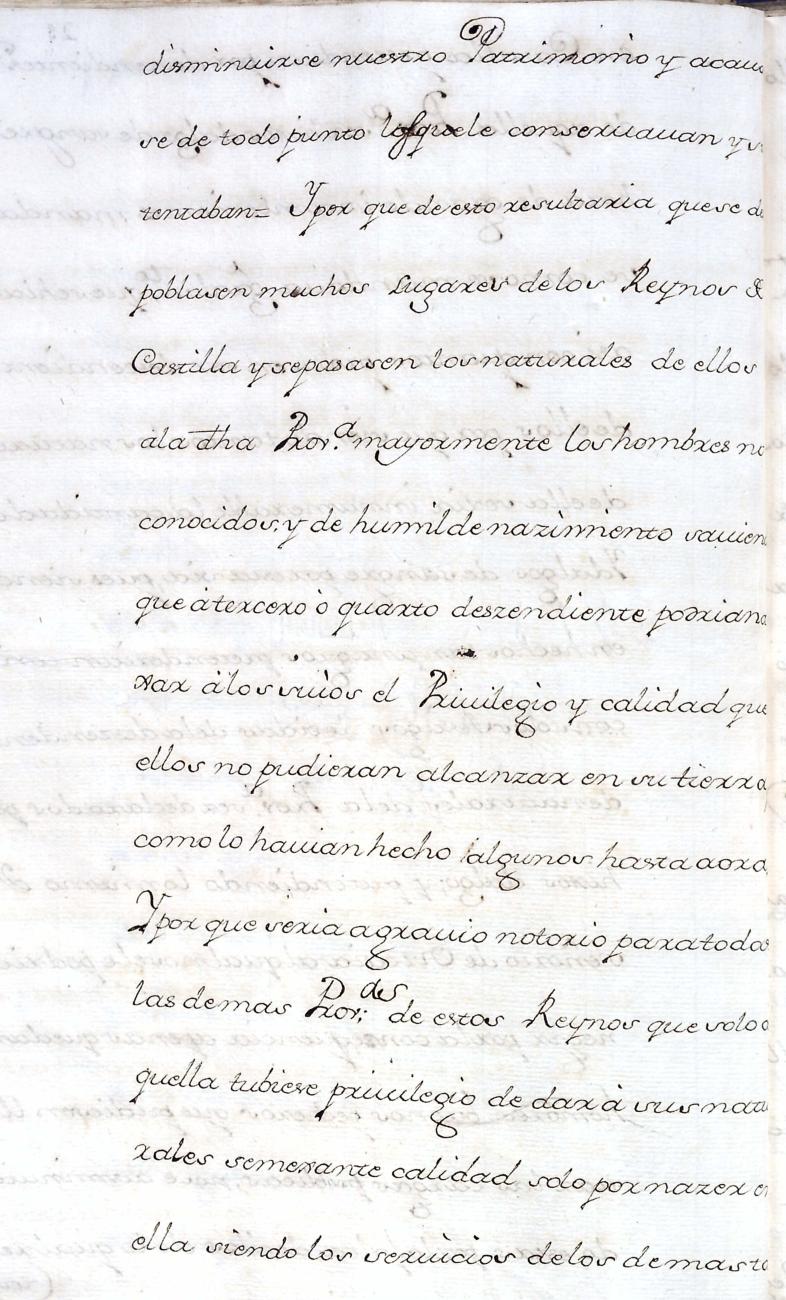 disminuirse nuestro Patrimonio y acaua
se de todo punto los que le conseruauan y su
tentaban= Y por que de esto resultaria que se de
poblasen muchos Lugares de los Reynos de
Castilla y se pasasen los naturales de ellos
à la dha Prov.ª mayormente los hombres no
conocidos, y de humilde nazimiento sauien
que à tercero ò quarto deszendiente podrian
rar à los suios el Priuilegio y calidad que
ellos no pudieran alcanzar en su tierra
como lo hauian hecho algunos hasta aora
Y por que seria agrauio notorio para todas
las demas Prov.des de estos Reynos que solo a
quella tubiese priuilegio de dar à sus natu
rales semexante calidad solo por nazer en
ella siendo los seruicios de los demas ta